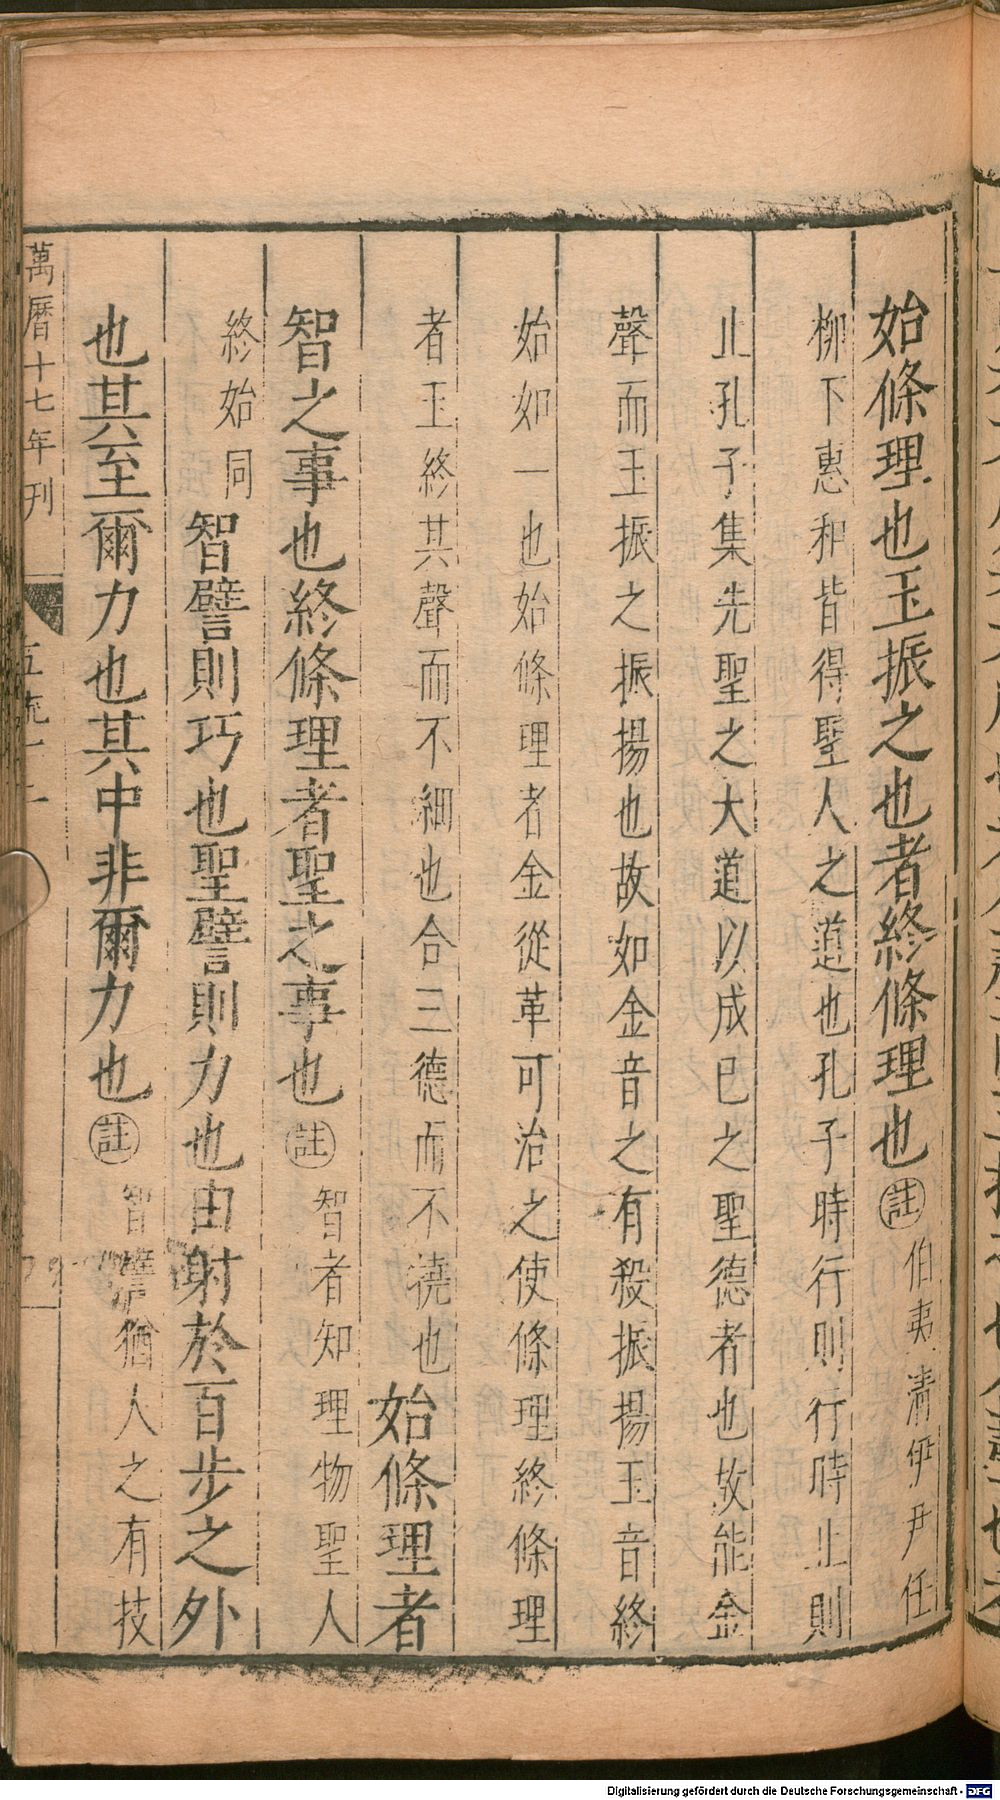 始條理也玉振之也者終條理也註伯夷清伊尹任
柳下惠和皆得聖人之道也孔子時行則行時止則
止孔子集先聖之大道以成己之聖德者也故能金
聲而玉振之振揚也故如金音之有殺振揚玉音終
始如一也始條理者金從革可治之使條理終條理
者玉終其聲而不細也合三德而不撓也始條理者
智之事也終條理者聖之事也註智者知理物聖人
終始同智譬則巧也聖譬則力也由射於百步之外
也其至爾力也其中非爾力也註智譬猶人之有技
萬曆十七年刊
Digitalisierung gefördert durch die Deutsche Forschungsgemeinschaft - DFG